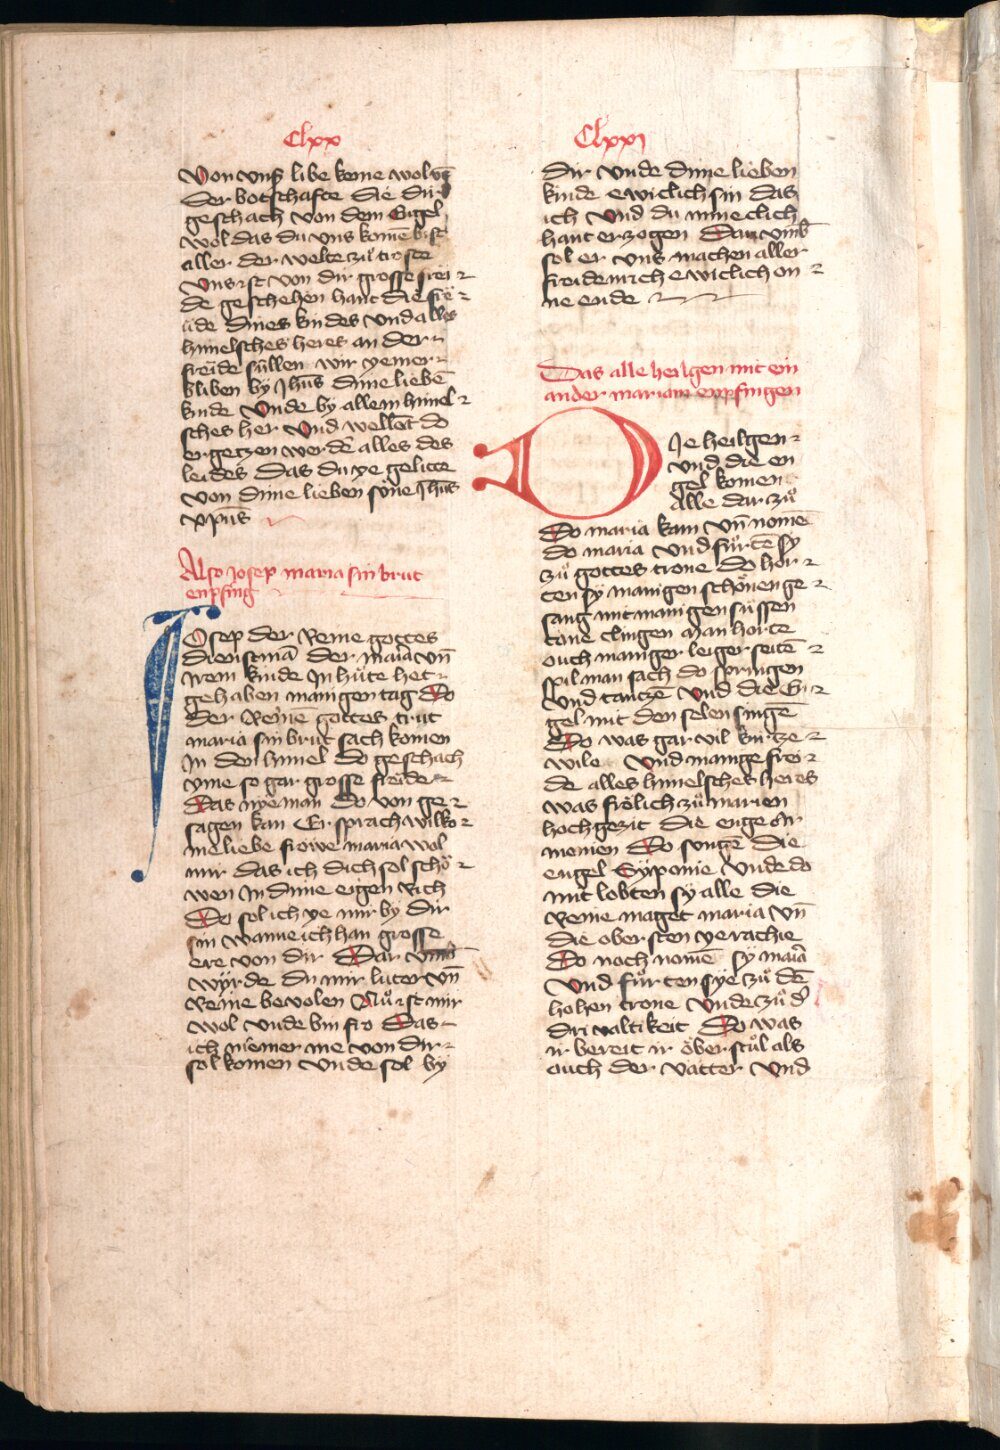 Clxx
Von vnß libe kome wol vß
der botschafte die dir
geschach von dem Engel
wol das du vns komē bist
aller der welte zuͦ troste
Vns ist von dir grosse frei
de geschehen hant die frē
ude dines kindes vnd alles
himelsches heres an der
freide sullen wir yemer
bliben by Jhūs dime liebē
kinde Vnde by allem himel
sches her Vnd wellent do
ergetzen werdē alles des
leides Das du ye gelitte
von dime lieben sune Jhūs
xpūs
Also Josep maria sin brut
enpfing
Josep der Reine gottes
dienstmā der maīa vn̄
irem kinde In hüte het
gehaben manigen tag Do
der Reinē gottes trut
maria sin brut sach komen
In den himel do geschach
yme so gar grosse freide
Das nyeman do von ge
sagen kan Er sprach wilko
me liebe frowe maria wol
mir das ich dich sol scho
wen In dime eigen rich
Do sol ich ye mir by dir
sin wanne ich han grosse
ere von dir Dar vmb
wyrde du mir luter vn̄
Reine bevolen Nuͦ ist mir
wol vnde bin fro Das
ich niemer me von dir
sol komen vnde sol by
Clxxi
dir vnde dime lieben
kinde ewiclich sin das
ich vnd du mineclich
hant erzogen Dar vmb
sol er vns machen aller
freidenrich ewiclich on
ne ende
Das alle heilgen mit ein
ander mariam enpfingen
Die heilgen
vnd die en
gel komen
Alle dar zuͦ
Do maria kam vn̄ nomē
do maria vnd fuͦrtē sy
zuͦ gottes trone do hor
ten sy manigen schönen ge
sang mit manigen süssen
tone clingen man horte
ouch maniger leiger seitē
spil man sach do springen
vnd tantzē vnd die En
gel mit den selen singē
Do was gar vil kurtze
wile vnd manige frei
de alles himelsches heres
was frölich zuͦ marien
hochgezit die enge on
meinen Do sungē die
engel Syponie vnde do
mit lobten sy alle die
Reine maget maria vn̄
die obersten yerachie
Do noch nomē sy maīa
Vnd fuͦrten sye zuͦ dē
hohen trone vnde zuͦ d'
dri valtikeit Do was
ir bereit ir öber stuͦl als
ouch der vatter vnd